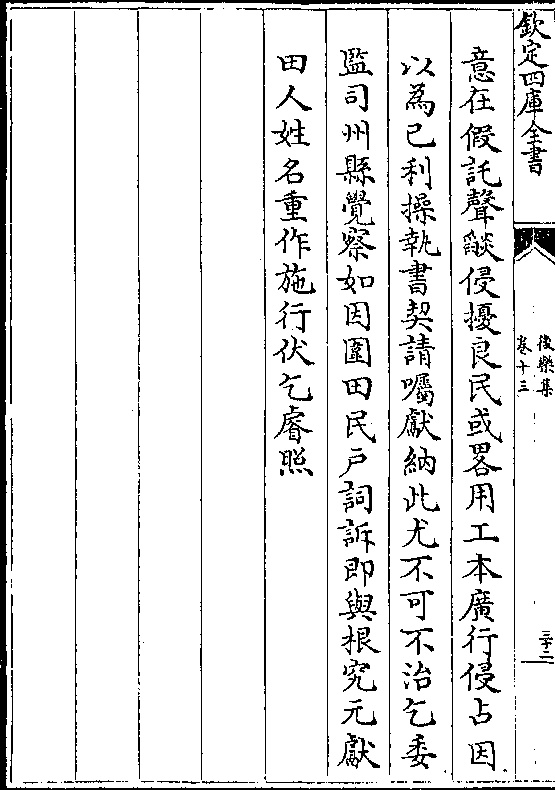 欽定四庫全書
後樂集
卷十三
三十二
意在假託聲燄侵擾良民或畧用工本廣行侵占因
以為已利操執書契請囑獻納此尤不可不治乞委
監司州縣覺察如因圍田民戸詞訴即與根究元獻
田人姓名重作施行伏乞睿照